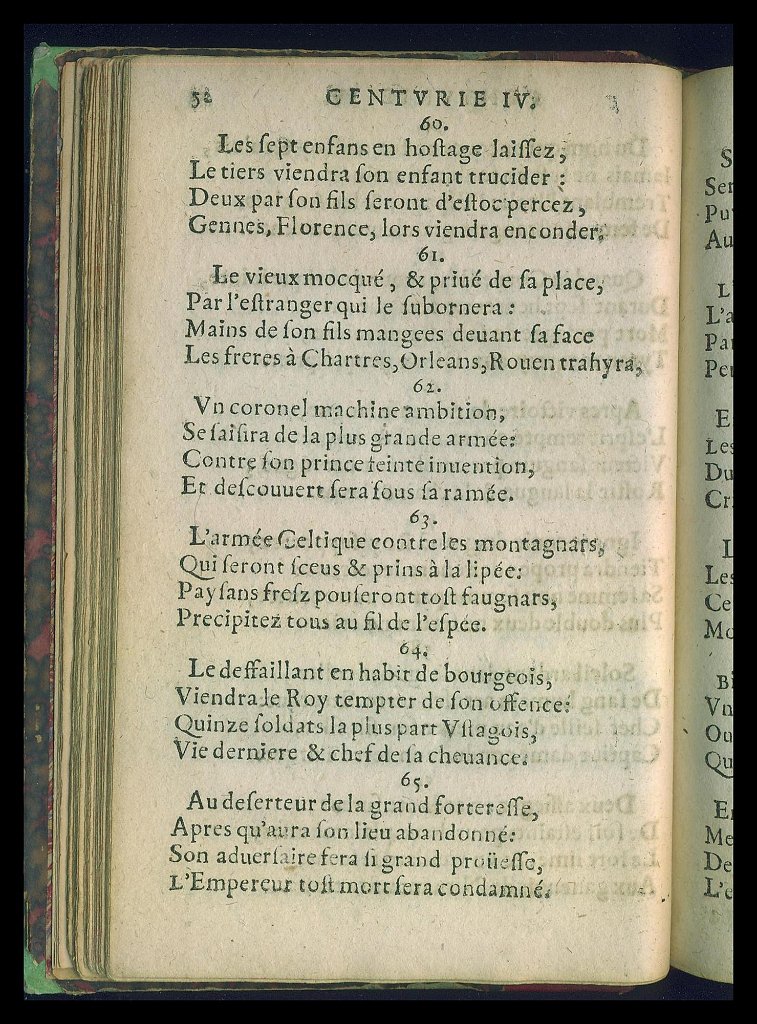 52 CENTVRIE IV.
60.
Les ſept enfans en hoſtage laiſſez,
Le tiers viendra ſon enfant trucider :
Deux par ſon fils ſeront d'eſtoc percez,
Gennes, Florence, lors viendra enconder.
61.
Le vieux mocqué, & priué de ſa place,
Par l'eſtranger qui le ſubornera :
Mains de ſon fils mangees deuant ſa face
Les freres à Chartres, Orleans, Rouen trahyra,
62.
Vn coronel machine ambition,
Se ſaiſira de la plus grande armée:
Contre ſon prince feinte inuention,
Et deſcouuert ſera ſous ſa ramée.
63.
L'armée Celtique contre les montagnars,
Qui ſeront ſceus & prins à la lipée:
Payſans freſz pouſeront toſt faugnars,
Precipitez tous au fil de l'eſpée.
64.
Le deffaillant en habit de bourgeois,
Viendra le Roy tempter de ſon offence:
Quinze ſoldats la plus part Vſtagois,
Vie derniere & chef de ſa cheuance.
65.
Au deſerteur de la grand fortereſſe,
Apres qu'aura ſon lieu abandonné:
Son aduerſaire fera ſi grand proüeſſe,
L'Empereur toſt mort ſera condamné.
S
Ser
Pu
Au
L'
L'a
Pa
Pe
E
Les
Du
Cr
L
Les
Ce
Mo
Bi
Vn
Ou
Qu
E
Me
De
L'e